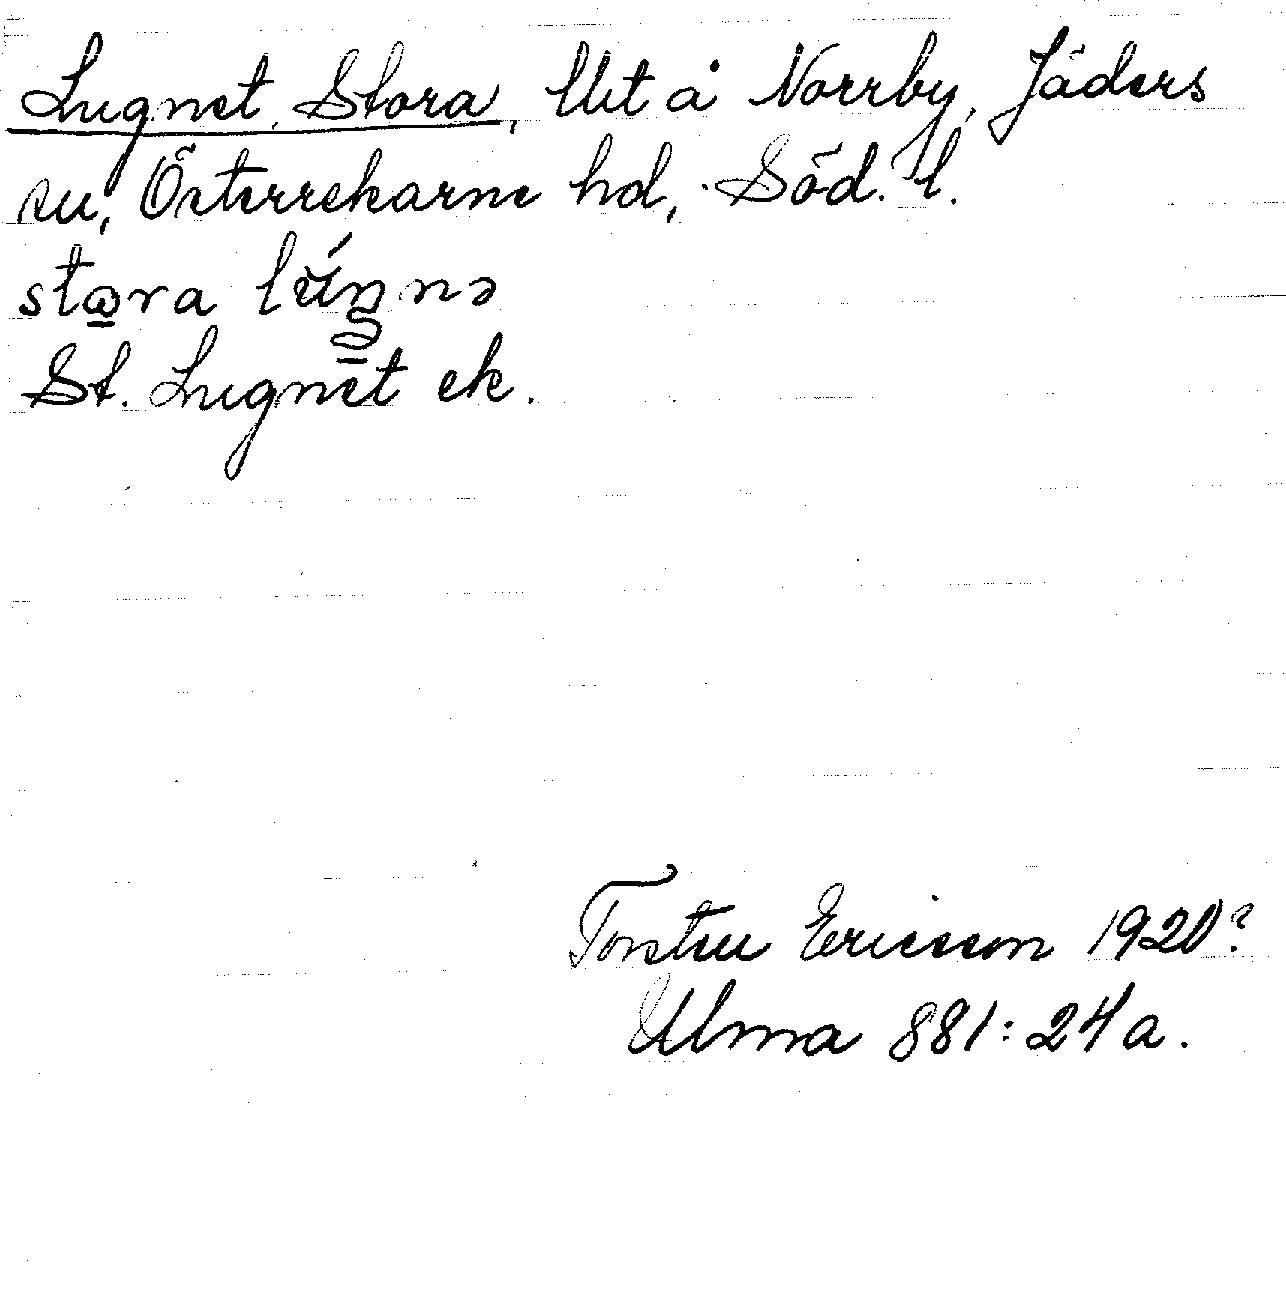 Lugnet, Stora, llht å Norrby, Jäders
sn, Österrekarne hd, Söd. l.
Sł. Lugnet ek.
Torsten Ericsson 1920?
Ulma 881:24a.